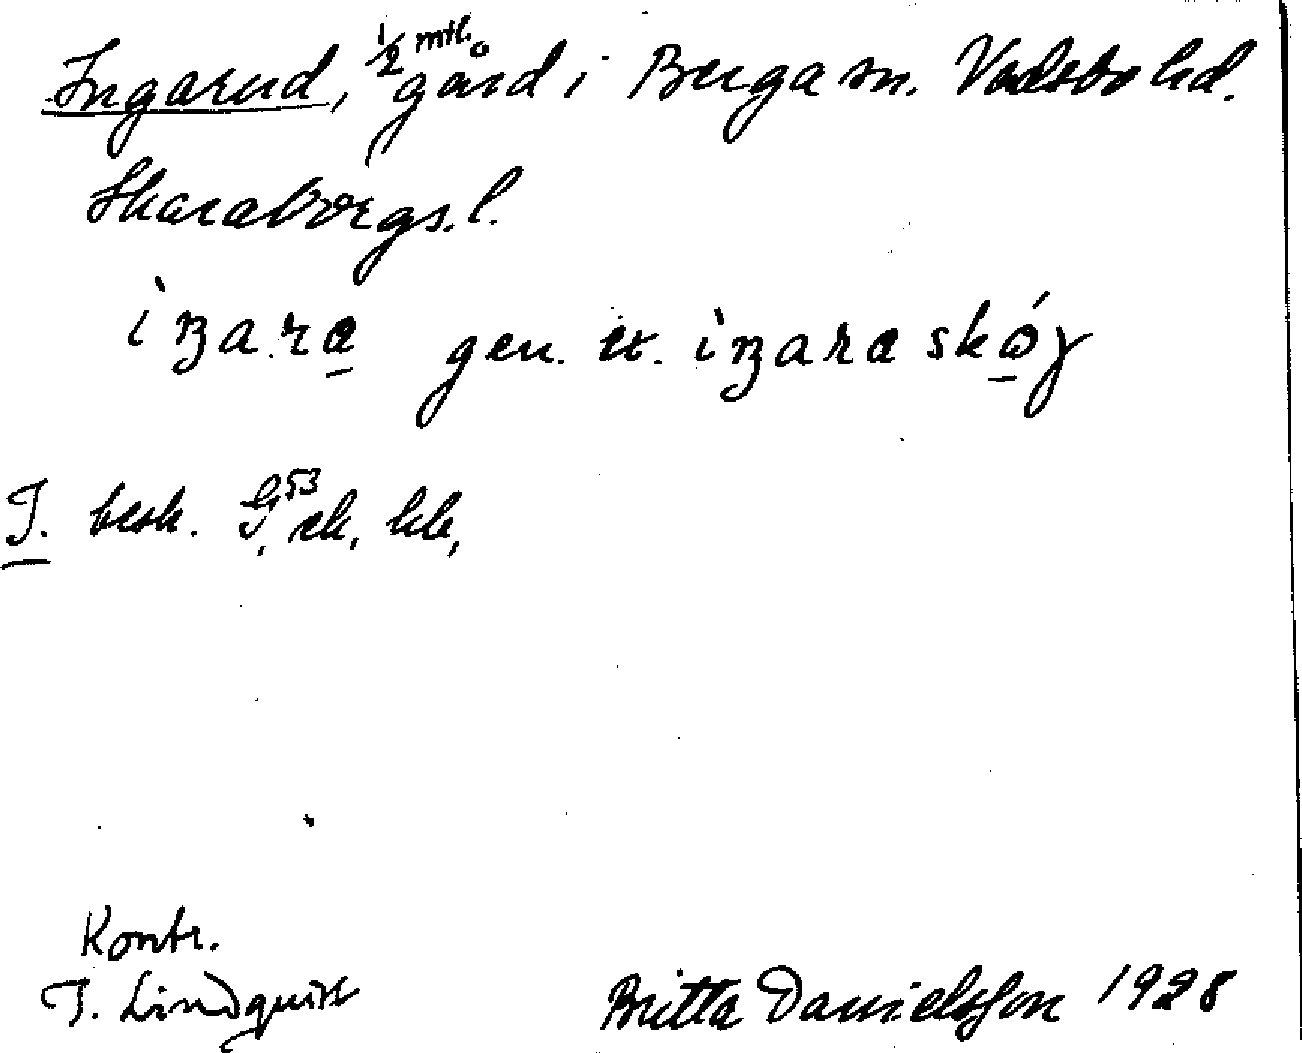 Ingarud, 1/2 mtl. gård i Berga sn. Vadsbo hd.
Skaraborgs. l.
iŋara gen. ex. iŋara skóγ
I. besk. G53, ek, hk,
Kontr.
I. Lindquist
Britta Danielsson 1928